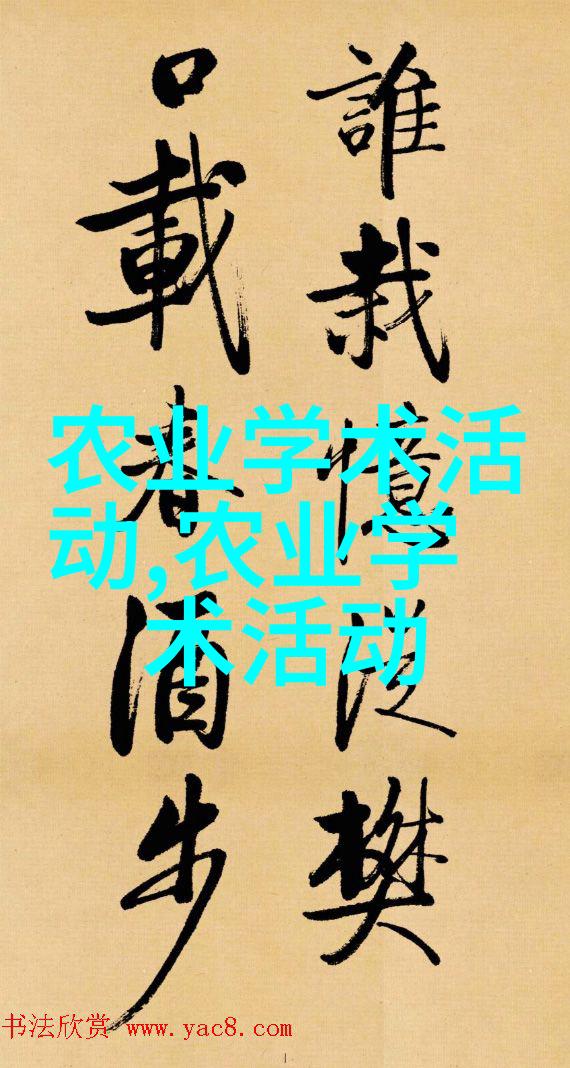 誰栽憶泛樊
口載春酒步
农业学术活
动,农业学
术活动
书法欣赏 www.yac8.com